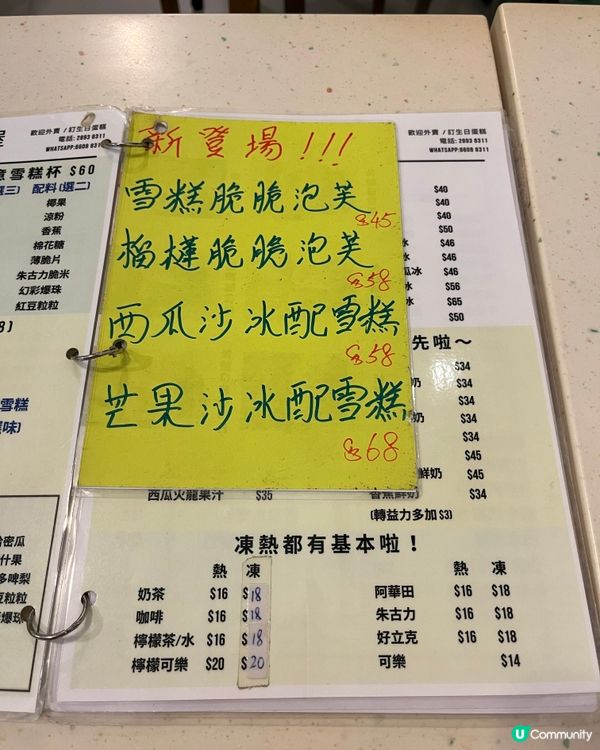 屋
意雪糕杯 $60
選三) 配料(選二)
椰果
涼粉
香蕉
棉花糖
薄脆片
朱古力脆米
幻彩爆珠
紅豆粒粒
雪糕
味)
哈密瓜
什果
多啤梨
豆粒粒
爆珠
歡迎外賣 / 訂生日蛋糕
電話: 2893 8311
WHATSAPP:6608 8311
新登場!!!
雪糕脆脆泡芙
$45
榴槤脆脆泡芙
$58
西瓜沙冰配雪糕
$58
芒果沙冰配雪糕
$68
歡迎外賣 / 訂生日蛋糕
電話: 2893 8311
WHATSAPP:6608 8311
$40
$40
$40
$50
冰 $46
冰 $46
瓜冰 $46
冰 $56
冰 $65
$50
先啦~
$34
奶 $34
$34
奶 $34
$34
$45
鮮奶 $45
西瓜火龍果汁 $35
香蕉鮮奶 $34
(轉益力多加 $3)
凍熱都有基本啦!
熱 凍
奶茶 $16 $18
咖啡 $16 $18
檸檬茶/水 $16 $18
檸檬可樂 $20 $20
熱 凍
阿華田 $16 $18
朱古力 $16 $18
好立克 $16 $18
可樂 $14
U Community